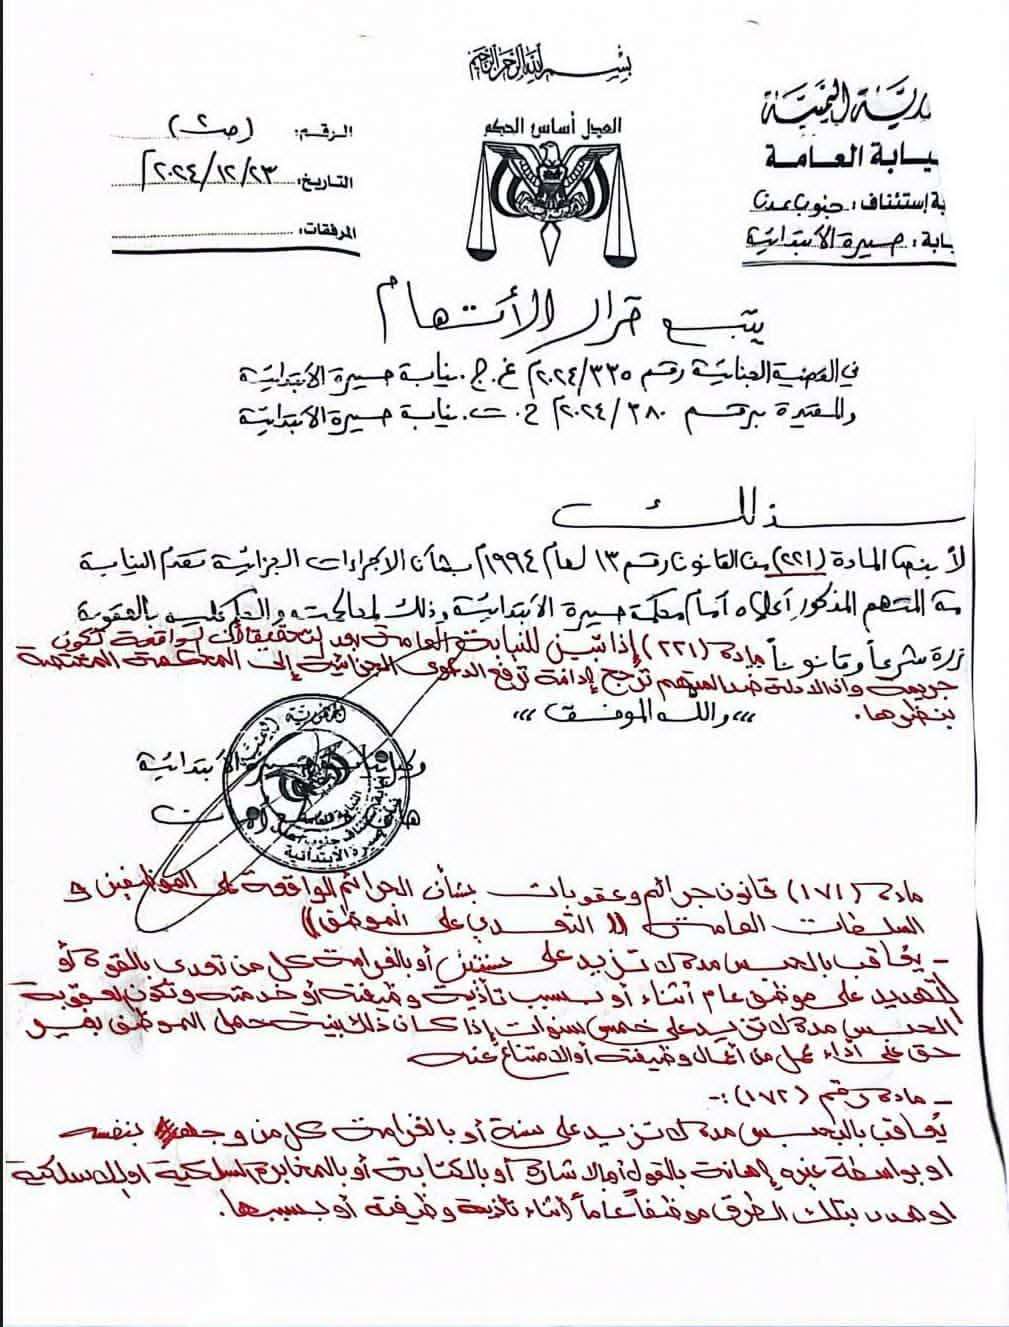 بسم الله الرحمن الرحيم
العدل أساس الحكم
ـرية اليمنية
ـيابة العامة
ـة إستئناف: جنوب عدن
ـيابة: صيرة الابتدائية
الرقم: (ص٢)
التاريخ: ٢٠٢٤/١٢/٢٣م
المرفقات:
يتبع قرار الأتهام
في القضية الجنائية رقم ٢٠٢٤/٣٣٥م غ.ج. نيابة صيرة الابتدائية
والمقيدة برقم ٢٠٢٤/٣٨٠م ج.ت. نيابة صيرة الابتدائية
لذلك
لاً بنص المادة (٢٢١) من القانون رقم ١٣ لعام ١٩٩٤م بشأن الاجراءات الجزائية تقدم النيابة
ـة المتهم المذكور أعلاه أمام محكمة صيرة الابتدائية وذلك لمحاكمته والحكم عليه بالعقوبة
ـررة شرعاً وقانوناً
مادة (٢٢١) إذا تبين للنيابة العامة بعد التحقيق أن الواقعة تكون
جريمة وان الادلة ضد المتهم ترجح إدانة ترفع الدعوى الجزائية إلى المحكمة المختصة
بنظرها.
،،، والله الموفق ،،،
وكيل نيابة صيرة الأبتدائية
مادة (١٧١) قانون جرائم وعقوبات بشأن الجرائم الواقعة على الموظفين و
السلطات العامة (( التعدي على الموظف ))
- يعاقب بالحبس مدة لا تزيد على سنتين أو بالغرامة كل من تعدى بالقوة أو
التهديد على موظف عام أثناء أو بسبب تأدية وظيفته أو خدمته وتكون العقوبة
الحبس مدة لا تزيد على خمس سنوات إذا كان ذلك بنية حمل الموظف بغير
حق على أداء عمل من أعمال وظيفته أو الامتناع عنه
- مادة رقم (١٧٢):-
يُعاقب بالحبس مدة لا تزيد على سنة أو بالغرامة كل من وجه بنفسه
او بواسطة غيره إهانة بالقول أو الاشارة أو بالكتابة أو بالمخابرة السلكية أو اللاسلكية
او هدد بتلك الطرق موظفاً عاماً أثناء تأدية وظيفته أو بسببها.